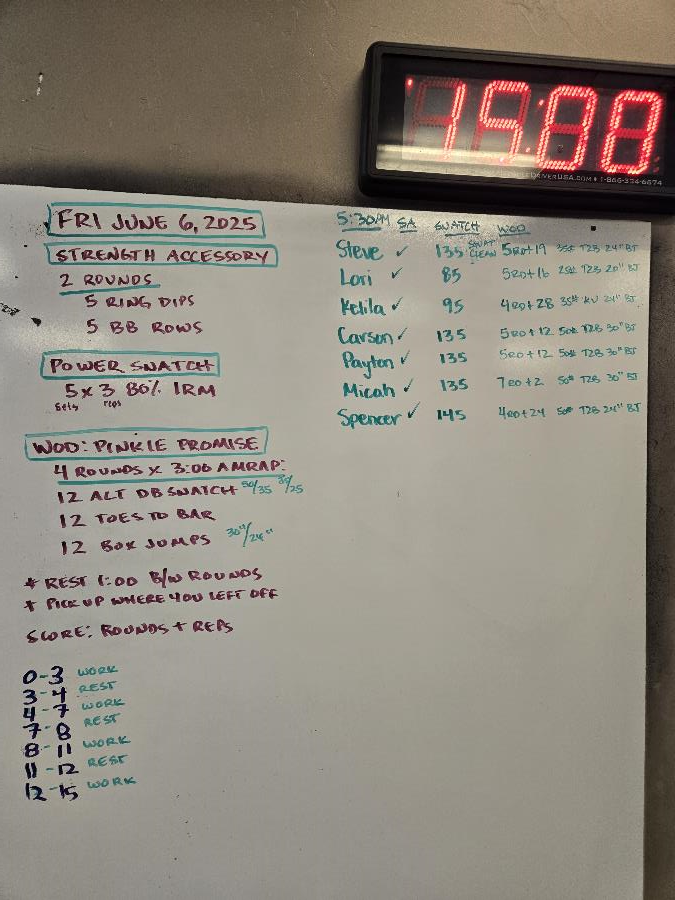 15:00
DRIVERUSA.COM • 1-866-334-6674
FRI JUNE 6, 2025
STRENGTH ACCESSORY
2 ROUNDS
5 RING DIPS
5 BB ROWS
POWER SNATCH
5 x 3 80% 1RM
sets reps
WOD: PINKIE PROMISE
4 ROUNDS X 3:00 AMRAP:
12 ALT DB SNATCH 50/35 35/25
12 TOES TO BAR
12 BOX JUMPS 30"/24"
* REST 1:00 B/W ROUNDS
* PICK UP WHERE YOU LEFT OFF
SCORE: ROUNDS + REPS
0-3 WORK
3-4 REST
4-7 WORK
7-8 REST
8-11 WORK
11-12 REST
12-15 WORK
5:30PM SA SNATCH WOD
Steve ✓ 135 SQUAT CLEAN 5RD+19 35# T2B 24" BJ
Lori ✓ 85 5RD+16 25# T2B 20" BJ
Kelila ✓ 95 4RD+28 35# KU 24" BJ
Carson ✓ 135 5RD+12 50# T2B 30" BJ
Payton ✓ 135 5RD+12 50# T2B 30" BJ
Micah ✓ 135 7RD+2 50# T2B 30" BJ
Spencer ✓ 145 4RD+24 50# T2B 24" BJ